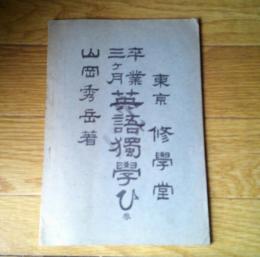 東京 修學堂
三ヶ月
卒業
英語獨學び
山岡秀岳著